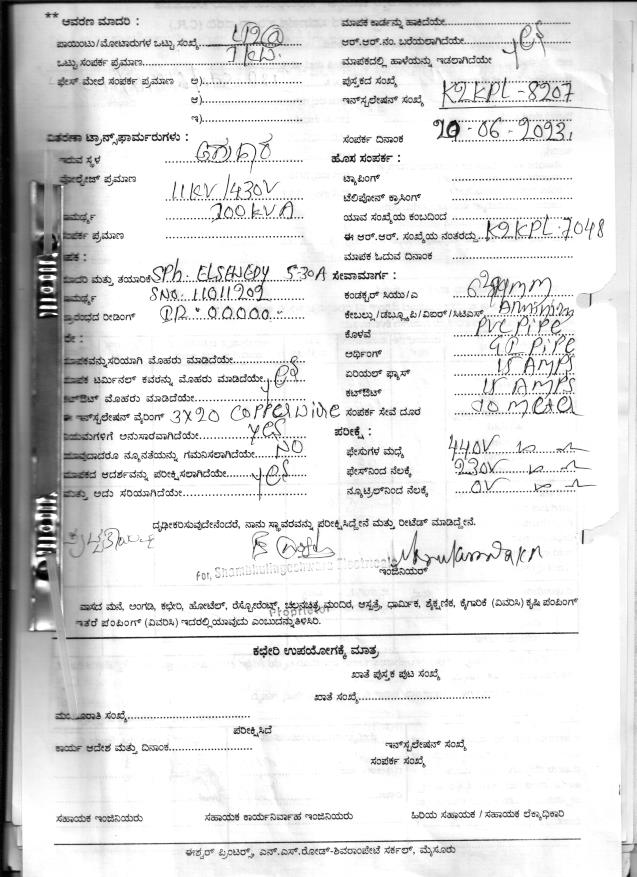 ** ಆವರಣ ಮಾದರಿ :
ಪಾಯಿಂಟು/ಮೋಟಾರುಗಳ ಒಟ್ಟು ಸಂಖ್ಯೆ
ಒಟ್ಟು ಸಂಪರ್ಕ ಪ್ರಮಾಣ 1 KW
ಫೇಸ್ ಮೇಲೆ ಸಂಪರ್ಕ ಪ್ರಮಾಣ ಅ)
ಆ)
ಇ)
ವಿತರಣಾ ಟ್ರಾನ್ಸ್‌ಫಾರ್ಮರುಗಳು :
ಇರುವ ಸ್ಥಳ
ವೋಲ್ಟೇಜ್ ಪ್ರಮಾಣ 11KV/430V
ಸಾಮರ್ಥ್ಯ 100KVA
ಸಂಪರ್ಕ ಪ್ರಮಾಣ
ಮಾಪಕ :
ಮಾದರಿ ಮತ್ತು ತಯಾರಿಕೆ SPh. 5-30A
ಸಾಮರ್ಥ್ಯ SNO. 11011209
ಪ್ರಾರಂಭದ ರೀಡಿಂಗ್ IR. 00000.
ಮಾಪಕವನ್ನು ಸರಿಯಾಗಿ ಮೊಹರು ಮಾಡಿದೆಯೇ
ಮಾಪಕ ಟರ್ಮಿನಲ್ ಕವರನ್ನು ಮೊಹರು ಮಾಡಿದೆಯೇ yes
ಕಟ್‌ಔಟ್ ಮೊಹರು ಮಾಡಿದೆಯೇ
ಈ ಇನ್‌ಸ್ಟಲೇಷನ್ ವೈರಿಂಗ್ 3X20 COPPER WIRE
ನಿಯಮಗಳಿಗೆ ಅನುಸಾರವಾಗಿದೆಯೇ yes
ಯಾವುದಾದರೂ ನ್ಯೂನತೆಯನ್ನು ಗಮನಿಸಲಾಗಿದೆಯೇ NO
ಮಾಪಕದ ಆದರ್ಶವನ್ನು ಪರೀಕ್ಷಿಸಲಾಗಿದೆಯೇ yes
ಮತ್ತು ಅದು ಸರಿಯಾಗಿದೆಯೇ
ಮಾಪಕ ಕಾರ್ಡನ್ನು ಹಾಕಿದೆಯೇ
ಆರ್.ಆರ್.ನಂ. ಬರೆಯಲಾಗಿದೆಯೇ yes
ಮಾಪಕದಲ್ಲಿ ಹಾಳೆಯನ್ನು ಇಡಲಾಗಿದೆಯೇ
ಪುಸ್ತಕದ ಸಂಖ್ಯೆ
ಇನ್‌ಸ್ಟಲೇಷನ್ ಸಂಖ್ಯೆ K2KPL-8207
ಸಂಪರ್ಕ ದಿನಾಂಕ 20-06-2023
ಹೊಸ ಸಂಪರ್ಕ :
ಟ್ಯಾಪಿಂಗ್
ಟೆಲಿಫೋನ್ ಕ್ರಾಸಿಂಗ್
ಯಾವ ಸಂಖ್ಯೆಯ ಕಂಬದಿಂದ
ಈ ಆರ್.ಆರ್. ಸಂಖ್ಯೆಯ ನಂತರದ್ದು K2KPL-7048
ಮಾಪಕ ಓದುವ ದಿನಾಂಕ
ಸೇವಾಮಾರ್ಗ :
ಕಂಡಕ್ಟರ್ ಸಿಯು/ಎ
ಕೇಬಲ್ಲು/ಡಬ್ಲ್ಯೂಪಿ/ವಿಐಆರ್/ಸಿಟಿಎಸ್
ಕೊಳವೆ PVC PIPE
ಅರ್ಥಿಂಗ್ GI PIPE
ಏರಿಯಲ್ ಫ್ಯೂಸ್ 15 AMPS
ಕಟ್‌ಔಟ್ 15 AMPS
ಸಂಪರ್ಕ ಸೇವೆ ದೂರ 10 meter
ಪರೀಕ್ಷೆ :
ಫೇಸುಗಳ ಮಧ್ಯೆ 440V
ಫೇಸ್‌ನಿಂದ ನೆಲಕ್ಕೆ 230V
ನ್ಯೂಟ್ರಲ್‌ನಿಂದ ನೆಲಕ್ಕೆ 0V
ದೃಢೀಕರಿಸುವುದೇನೆಂದರೆ, ನಾನು ಸ್ಥಾವರವನ್ನು ಪರೀಕ್ಷಿಸಿದ್ದೇನೆ ಮತ್ತು ರೀಟೆಡ್ ಮಾಡಿದ್ದೇನೆ.
For, Shambhulingeshwara Electricals
ಇಂಜಿನಿಯರ್
Proprietor
ವಾಸದ ಮನೆ, ಅಂಗಡಿ, ಕಛೇರಿ, ಹೋಟೆಲ್, ರೆಸ್ಟೋರೆಂಟ್, ಚಲನಚಿತ್ರ ಮಂದಿರ, ಆಸ್ಪತ್ರೆ, ಧಾರ್ಮಿಕ, ಶೈಕ್ಷಣಿಕ, ಕೈಗಾರಿಕೆ (ವಿವರಿಸಿ) ಕೃಷಿ ಪಂಪಿಂಗ್
ಇತರೆ ಪಂಪಿಂಗ್ (ವಿವರಿಸಿ) ಇದರಲ್ಲಿ ಯಾವುದು ಎಂಬುದನ್ನು ತಿಳಿಸಿರಿ.
ಕಛೇರಿ ಉಪಯೋಗಕ್ಕೆ ಮಾತ್ರ
ಖಾತೆ ಪುಸ್ತಕ ಪುಟ ಸಂಖ್ಯೆ
ಖಾತೆ ಸಂಖ್ಯೆ
ಮಂಜೂರಾತಿ ಸಂಖ್ಯೆ
ಪರೀಕ್ಷಿಸಿದೆ
ಕಾರ್ಯ ಆದೇಶ ಮತ್ತು ದಿನಾಂಕ
ಇನ್‌ಸ್ಟಲೇಷನ್ ಸಂಖ್ಯೆ
ಸಂಪರ್ಕ ಸಂಖ್ಯೆ
ಸಹಾಯಕ ಇಂಜಿನಿಯರು ಸಹಾಯಕ ಕಾರ್ಯನಿರ್ವಾಹ ಇಂಜಿನಿಯರು ಹಿರಿಯ ಸಹಾಯಕ / ಸಹಾಯಕ ಲೆಕ್ಕಾಧಿಕಾರಿ
ಈಶ್ವರ್ ಪ್ರಿಂಟರ್ಸ್, ಎನ್.ಎಸ್.ರೋಡ್-ಶಿವರಾಂಪೇಟೆ ಸರ್ಕಲ್, ಮೈಸೂರು